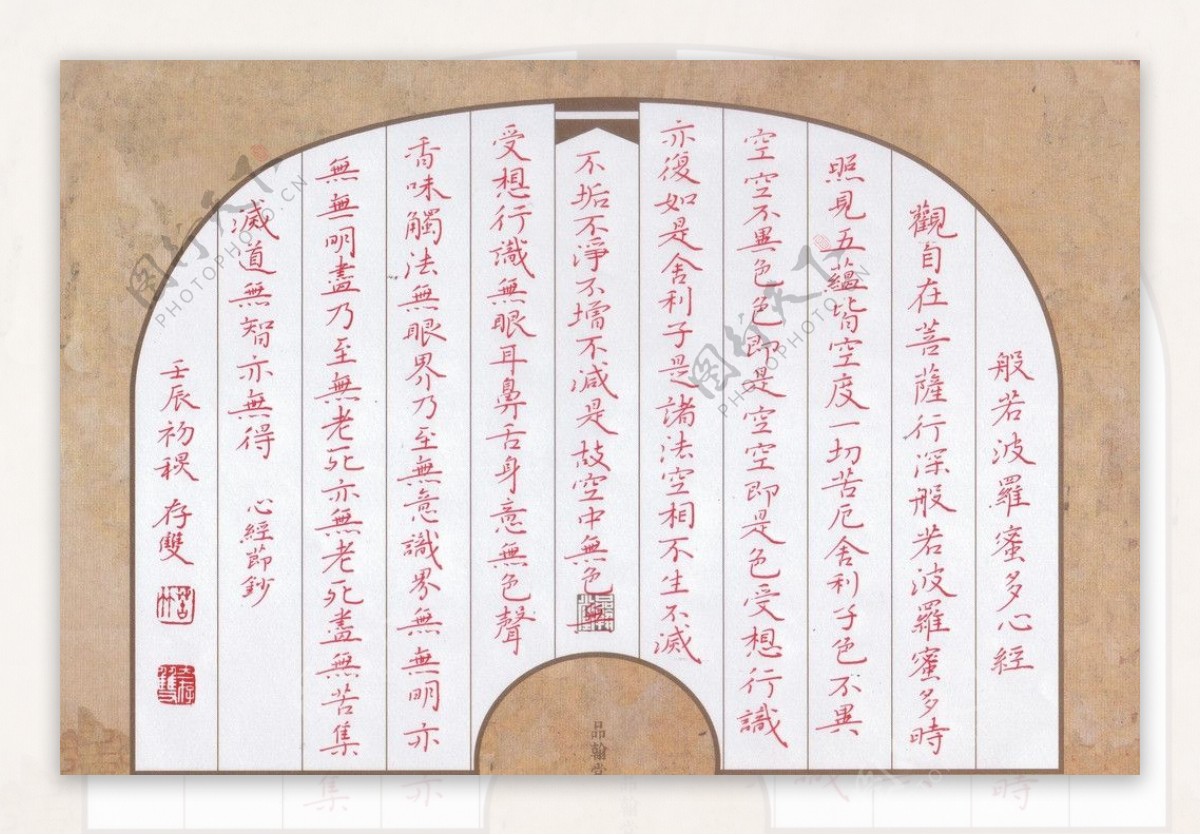 般若波羅蜜多心經
觀自在菩薩行深般若波羅蜜多時
照見五蘊皆空度一切苦厄舍利子色不異
空空不異色色即是空空即是色受想行識
亦復如是舍利子是諸法空相不生不滅
不垢不淨不增不減是故空中無色無
受想行識無眼耳鼻舌身意無色聲
香味觸法無眼界乃至無意識界無無明亦
無無明盡乃至無老死亦無老死盡無苦集
滅道無智亦無得 心經節鈔
壬辰初 存雙
品翰堂
图行天下
PHOTOPHOTO.CN
图行天下
PHOTOPHOTO.CN